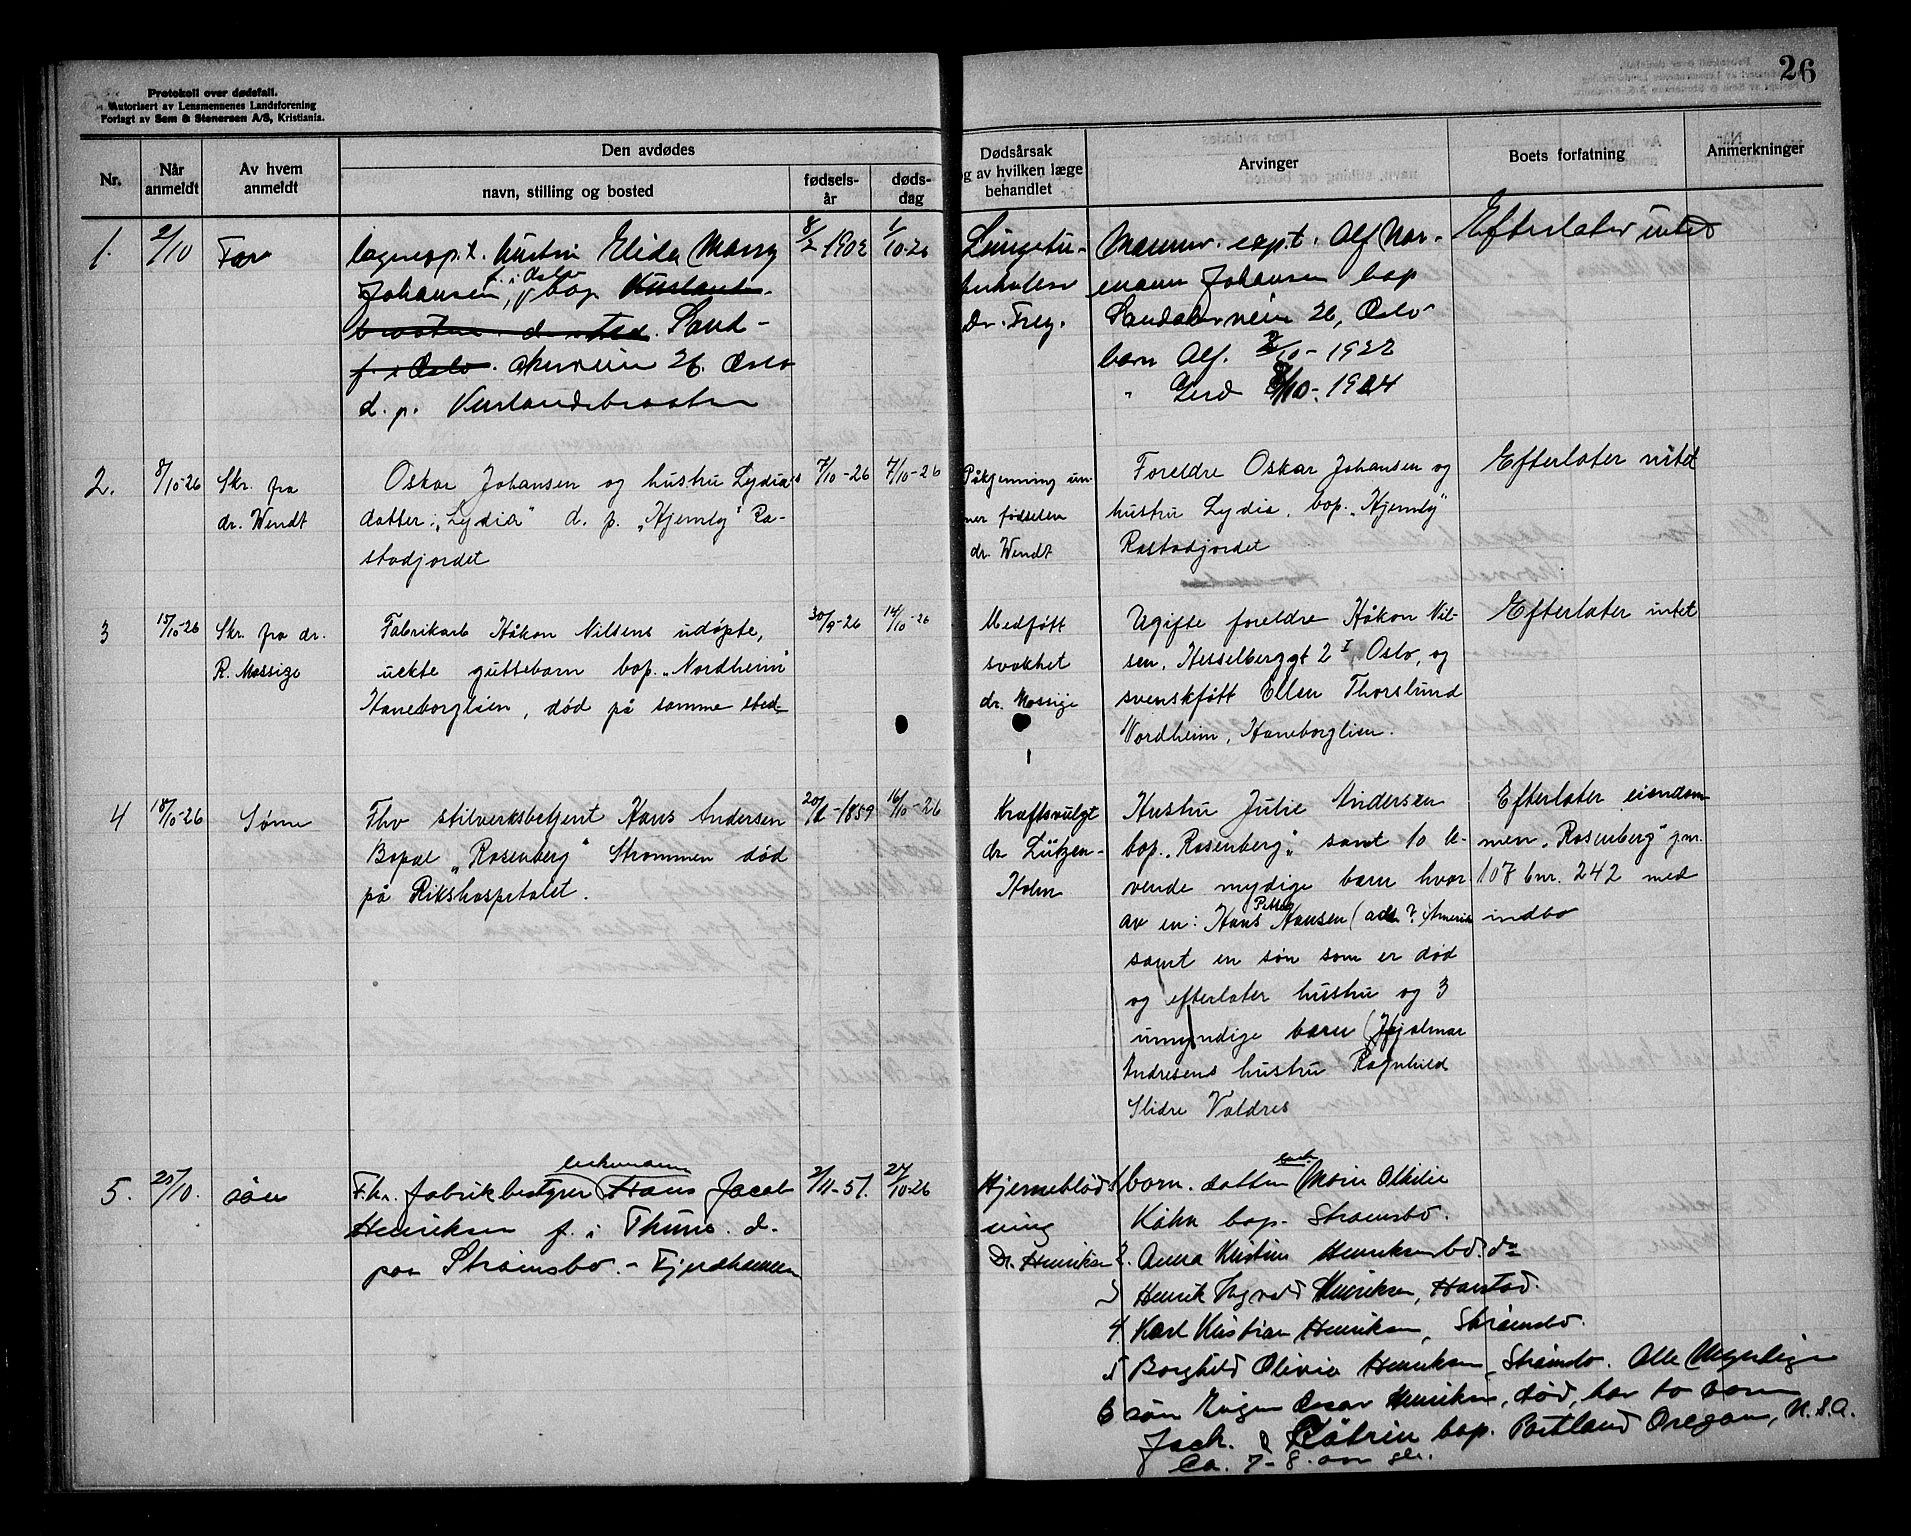 26
Protokoll over dødsfall.
Autorisert av Lensmennenes Landsforening
Forlagt av Sem & Stenersen A/S, Kristiania.
Nr.
Når anmeldt
Av hvem anmeldt
Den avdødes
navn, stilling og bosted
fødsels-år
døds-dag
Dødsårsak
og av hvilken læge
behandlet
Arvinger
Boets forfatning
Anmerkninger
1. 2/10 Far
hustru Elida
Johansen, f. i Oslo bop
Sand-
f. i Oslo. akerveien 26. Oslo
d. p. Kurlandsbraaten
8/2-1902 1/10-26
Lungetu-
berkulose
Dr. Frey.
capt. Alf Nor-
mann Johansen bop
Sandakerveien 26, Oslo
barn Alf. 2/10-1922
" Gerd 8/10-1924
Efterlater intet
2. 8/10-26 Skr. fra
dr. Wendt
Oskar Johansen og hustru Lydias
datter: „Lydia" d. p. „Hjemly" Ra-
stadjordet
7/10-26 7/10-26
Påkjenning un-
ner fødselen
dr. Wendt
Foreldre Oskar Johansen og
hustru Lydia, bop. „Hjemly"
Rastadjordet
Efterlater intet
3 15/10-26 Skr. fra dr.
R. Mossige
Fabrikarb Håkon Nilsens udøpte,
uekte guttebarn bop. „Nordheim"
Haneborglien, død på samme sted
30/9-26 14/10-26
Medføtt
svakhet
dr. Mossige
Ugifte foreldre Håkon Nil-
sen, Hesselberggt 2 I, Oslo, og
svenskføtt Ellen Thorslund
Nordheim, Haneborglien.
Efterlater intet
4 18/10-26 Sønn
Fhv stilverksbetjent Hans Andersen
Bopæl „Rosenberg" Strømmen død
på Rikshospitalet.
16/10-26
Kræftsvulst
dr Lützen-
Holm
Hustru Julie Andersen
bop. „Rosenberg" samt 10 le-
vende mydige barn hvor
av en: Hans Petter Hansen (adr ? i Amerik
samt en søn som er død
og efterlater hustru og 3
umyndige barn (Hjalmar
Andresens hustru Ragnhild
Slidre Valdres
Efterlater eiendom
men „Rosenberg" gnr.
107 bnr. 242 med
indbo
5. 25/10. søn
Fhv. fabrikbestyrer enkemann Hans Jacob
Henriksen f. i Thune. d.
paa Strømsbo. - Fjerdhammen
2/11-51. 24/10-26
Hjerneblød
ning
Dr. Henriksen
1 barn. datter enke Marie Othilie
Kåhn bop. Strømsbo.
2. Anna Kristine Henriksen bd. do
3 Henrik Ingvald Henriksen, Harstad.
4 Karl Kristian Henriksen, Strømsbo.
5 Borghild Olivia Henriksen, Strømsbo. Alle Myndige
6 søn Eugen Oscar Henriksen, død, har to barn
Jack. & Katrin bop. Portland Oregon, U.S.A.
Ca. 7-8. aar gl.